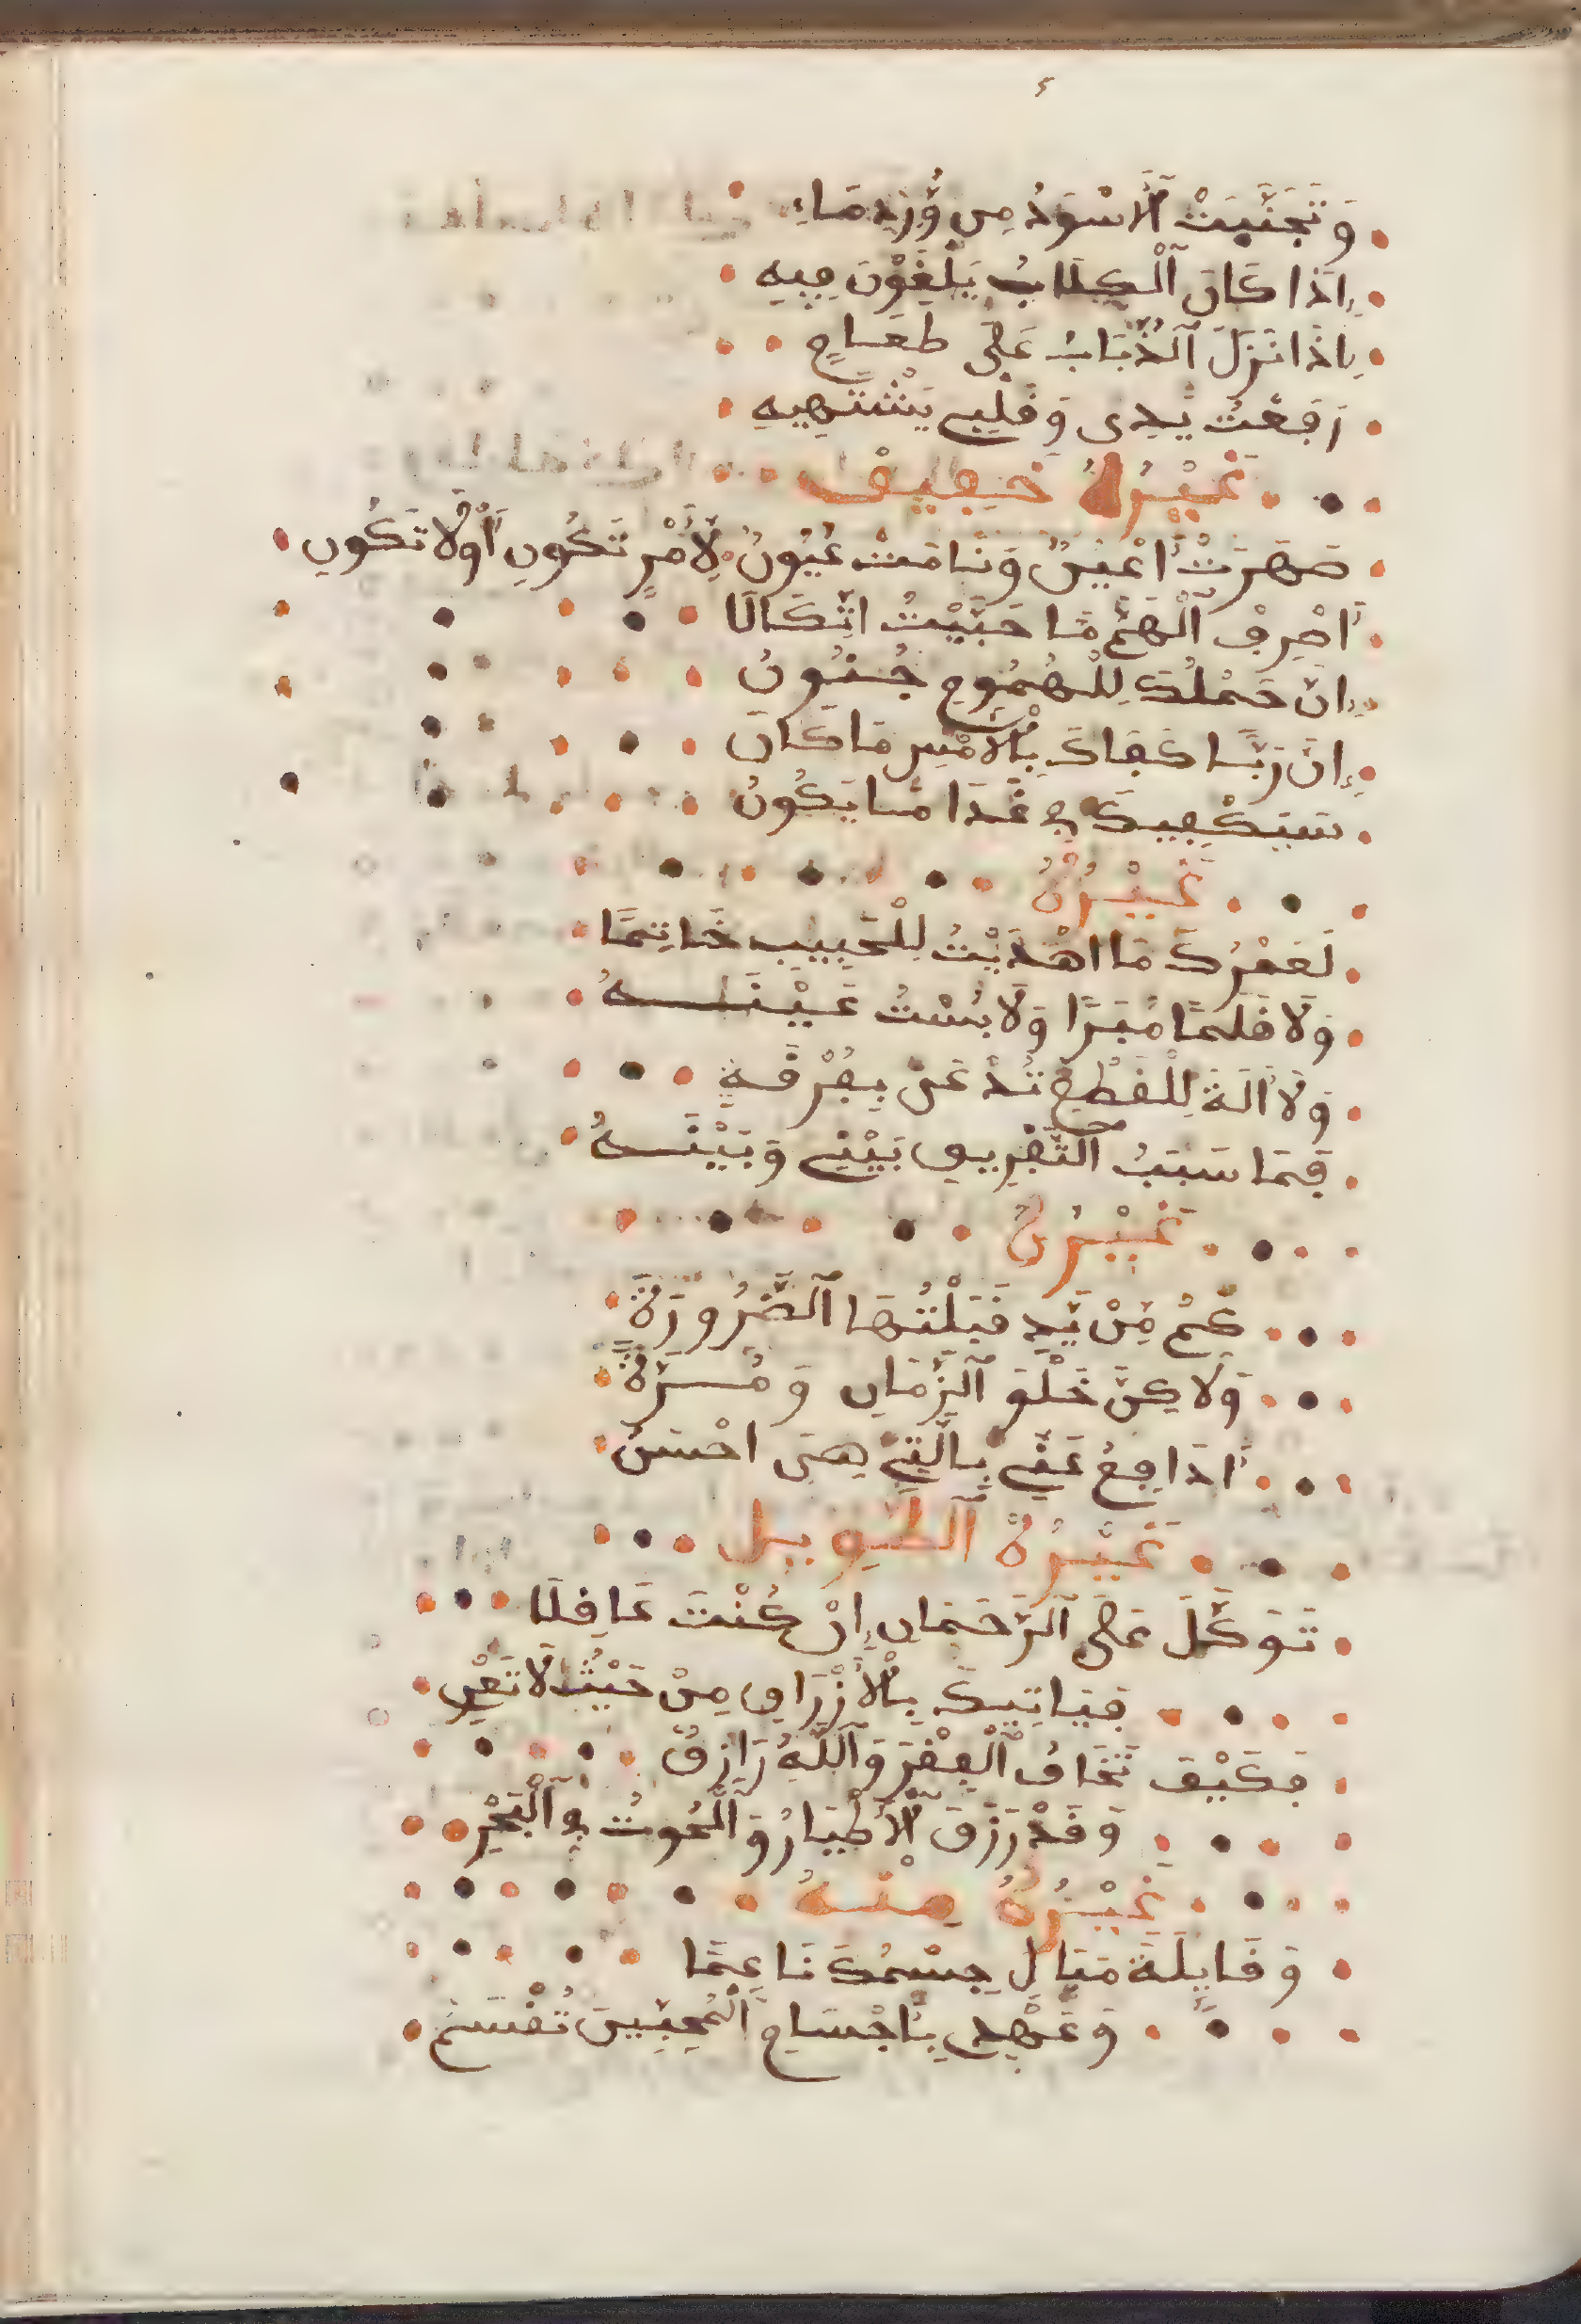 وَتَجَنَّبَتْ ٱلْأَسْوَدُ مِن وُّرْدِ مَاءِ
إِذَا كَانَ ٱلْكِلَابُ يَلْغَوْنَ فِيهِ
إِذَا نَزَلَ ٱلذُّبَابُ عَلَى طَعَامٍ
رَفَعْتُ يَدِى وَقَلْبِي يَشْتَهِيهِ
غَيْرُهُ خَفِيف
صَهَرَتْ أَعْيُنٌ وَنَامَتْ عُيُونُ لِأَمْرٍ تَكُونِ أَوْلَا تَكُونِ
أَصْرِفْ ٱلْهَمَّ مَا حَبَّيْتُ اتِّكَالَا
إِنَّ حَمْلُكَ لِلْهُمُومِ جُنُونُ
إِنَّ رَبَّا كَفَاكَ بِٱلْأَمْسِ مَا كَانَ
سَيَكْفِيكَ فِي غَدَا مَا يَكُونُ
غَيْرُهُ
لَعَمْرُكَ مَا اهْدَيْتُ لِلْحَبِيبِ خَاتِمًا
وَلَا قَلَمًا مُبَرًا وَلَا بُسْتُ عَيْنَهُ
وَلَا أَلَةَ لِلْقَطْعِ تُدْعَىٰ بِفُرْقَةٍ
فَمَا سَبَبُ ٱلتَّفْرِيقِ بَيْنِي وَبَيْنَهُ
غَيْرُهُ
كَمْ مِّنْ يَّدٍ قَبَلْتُهَا ٱلضَّرُورَةٌ
وَلَاكِنَّ خَلْقَ ٱلزَّمَانِ وَمُسَرَّةٌ
أَدَافِعُ عَنِّي بِالَّتِي هِىَ احْسَنُ
غَيْرُهُ ٱلطَّوِيل
تَوَكَّلَ عَلَى ٱلرَّحَمَانِ إِنْ كُنْتَ عَاقِلَا
فَيَاتِيكَ بِٱلْأَرْزَاقِ مِنْ حَيْثُ لَا تَدْرِي
فَكَيْفَ تَخَافُ ٱلْفِقْرَ وَٱللَّهُ رَازِقٌ
وَقَدْ رَزَقَ ٱلْأَطْيَارُ وَٱلْحُوتُ فِي ٱلْبَحْرِ
غَيْرُهُ مِنْهُ
وَقَايِلَةَ مَبَالِ جِسْمُكَ نَاعِمًا
وَعَهْدِي بِأَجْسَامِ ٱلْمُحِبِّينَ تُفْسَمُ